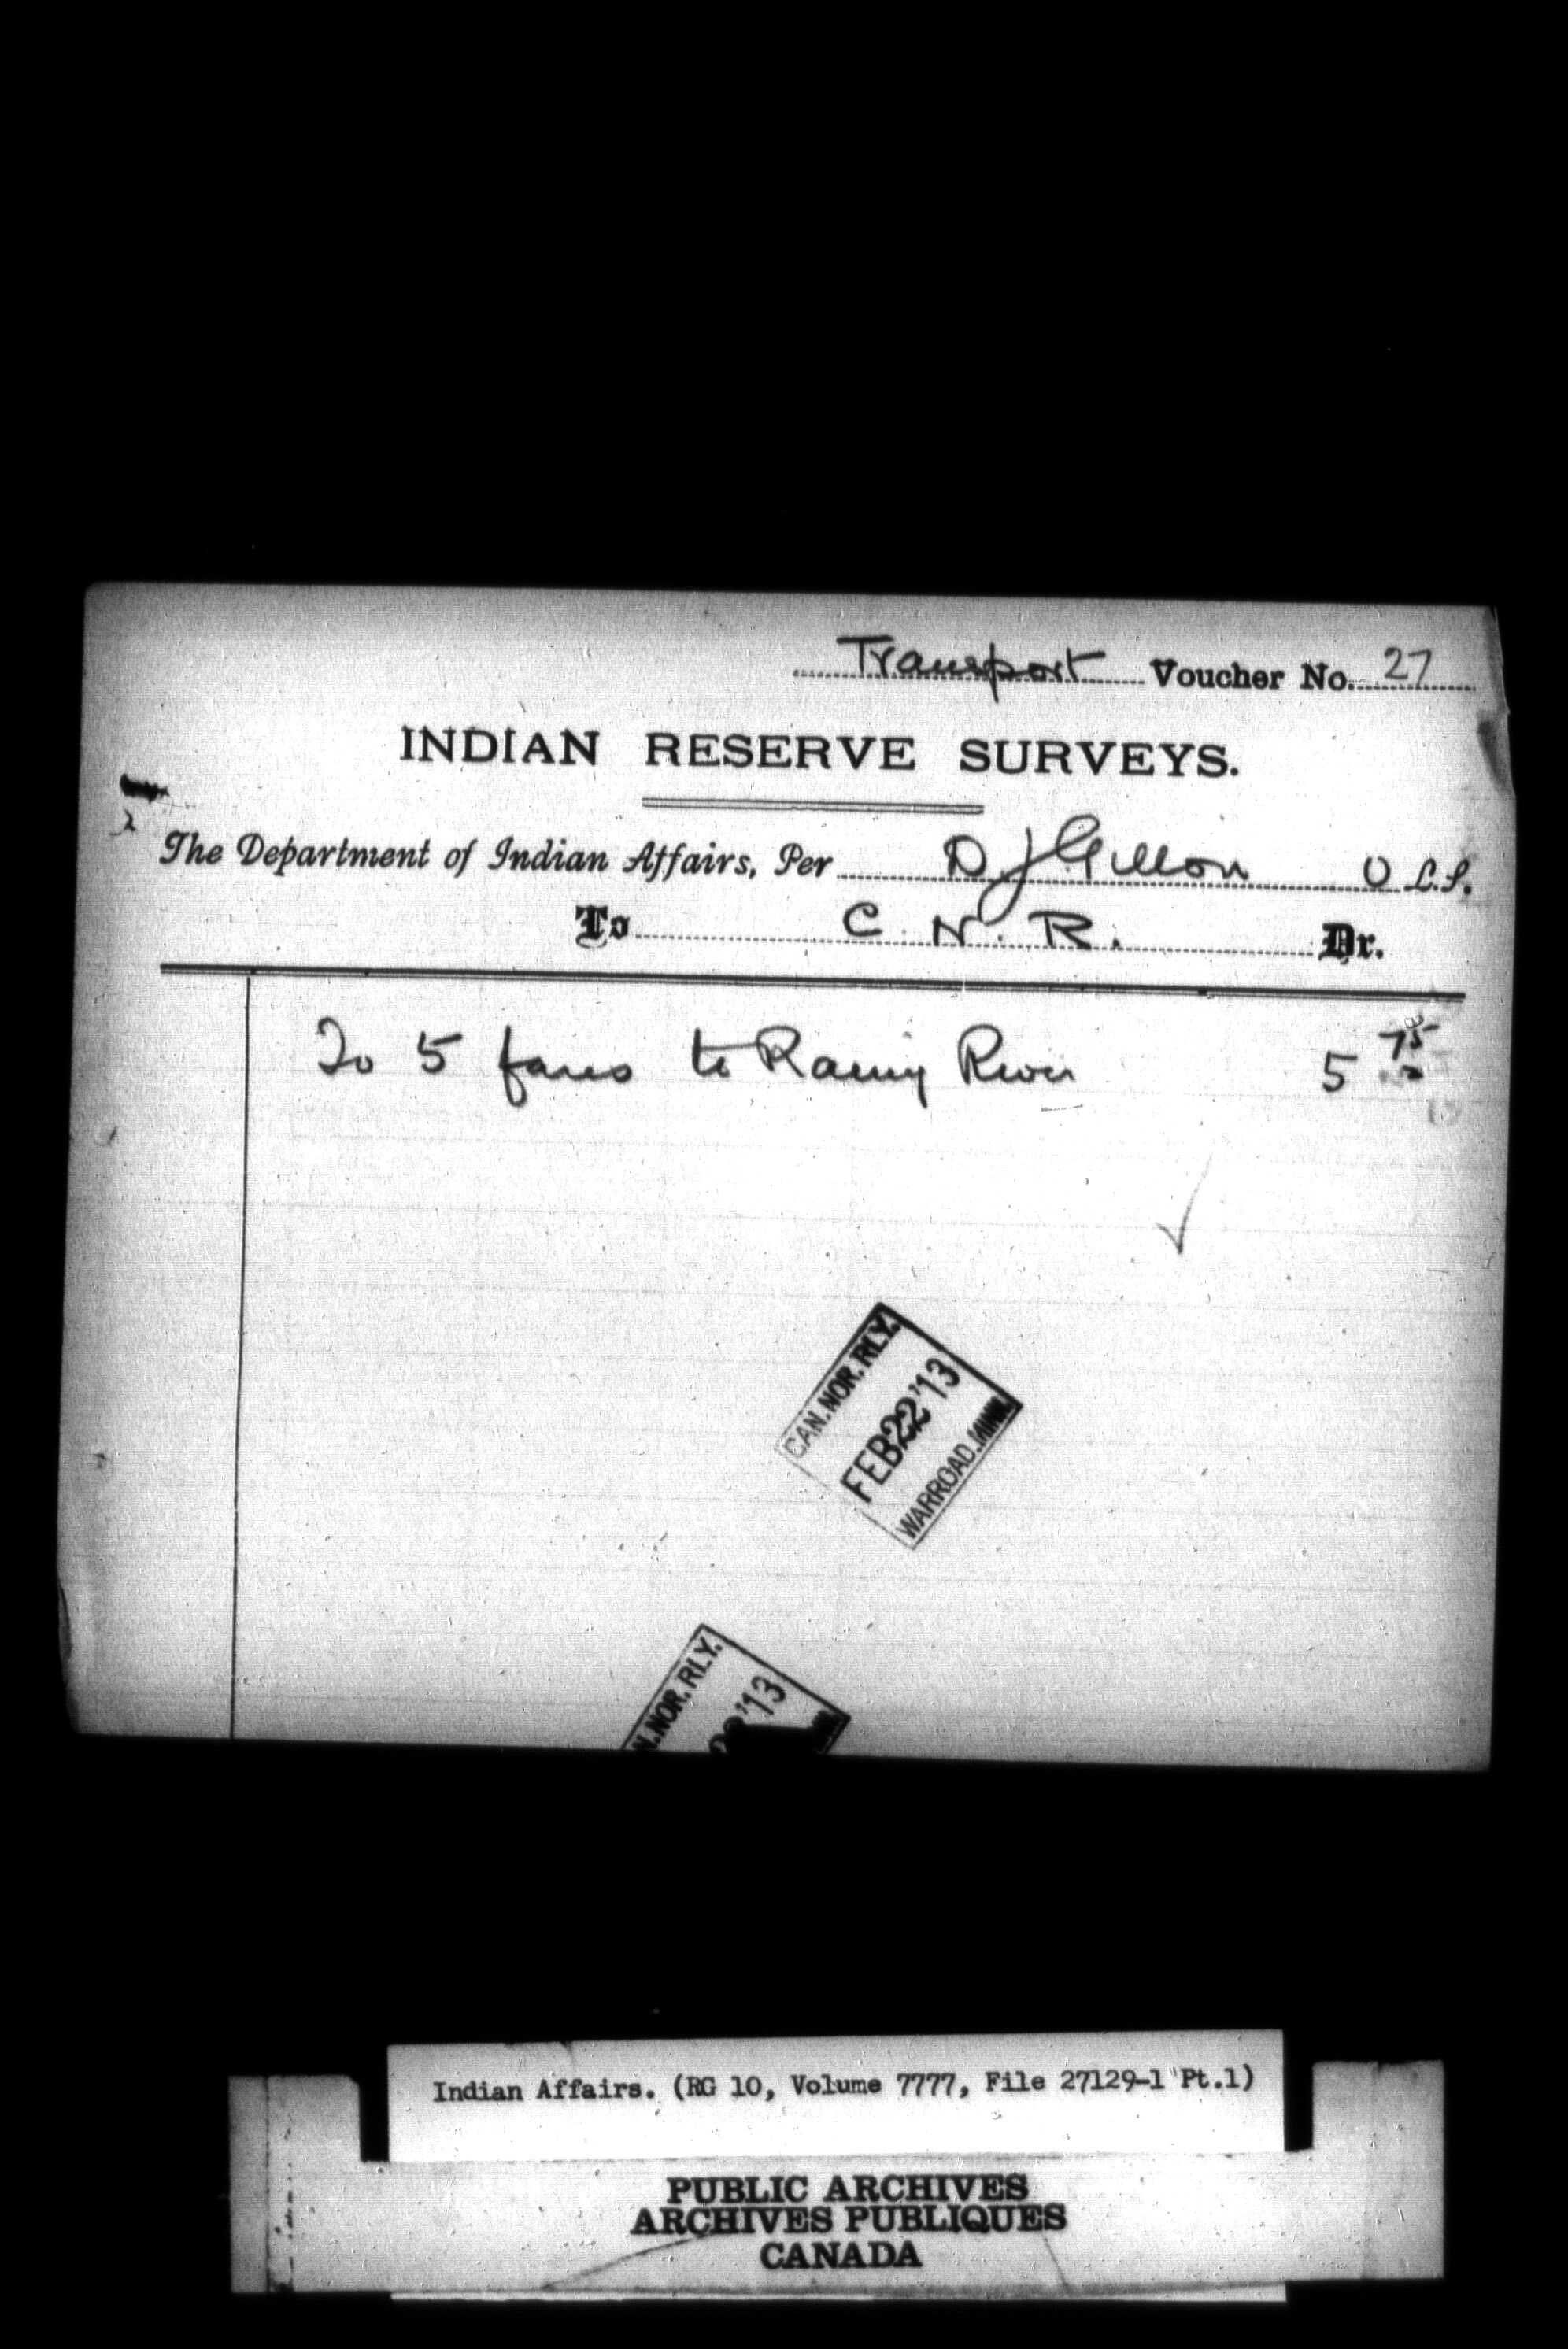 Transport Voucher No. 27
INDIAN RESERVE SURVEYS.
The Department of Indian Affairs, Per D J Gillon O L.S.
To C. N. R. Dr.
To 5 fares to Rainy River 5 75
CAN. NOR. RLY.
FEB 22 '13
WARROAD, MINN.
N. NOR. RLY.
22 '13
Indian Affairs. (RG 10, Volume 7777, File 27129-1 Pt.1)
PUBLIC ARCHIVES
ARCHIVES PUBLIQUES
CANADA